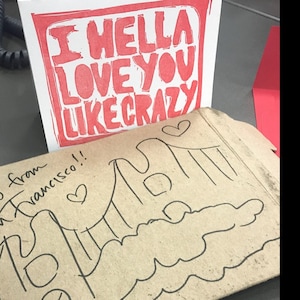 I HELLA
LOVE YOU
LIKE CRAZY
from
Francisco!!